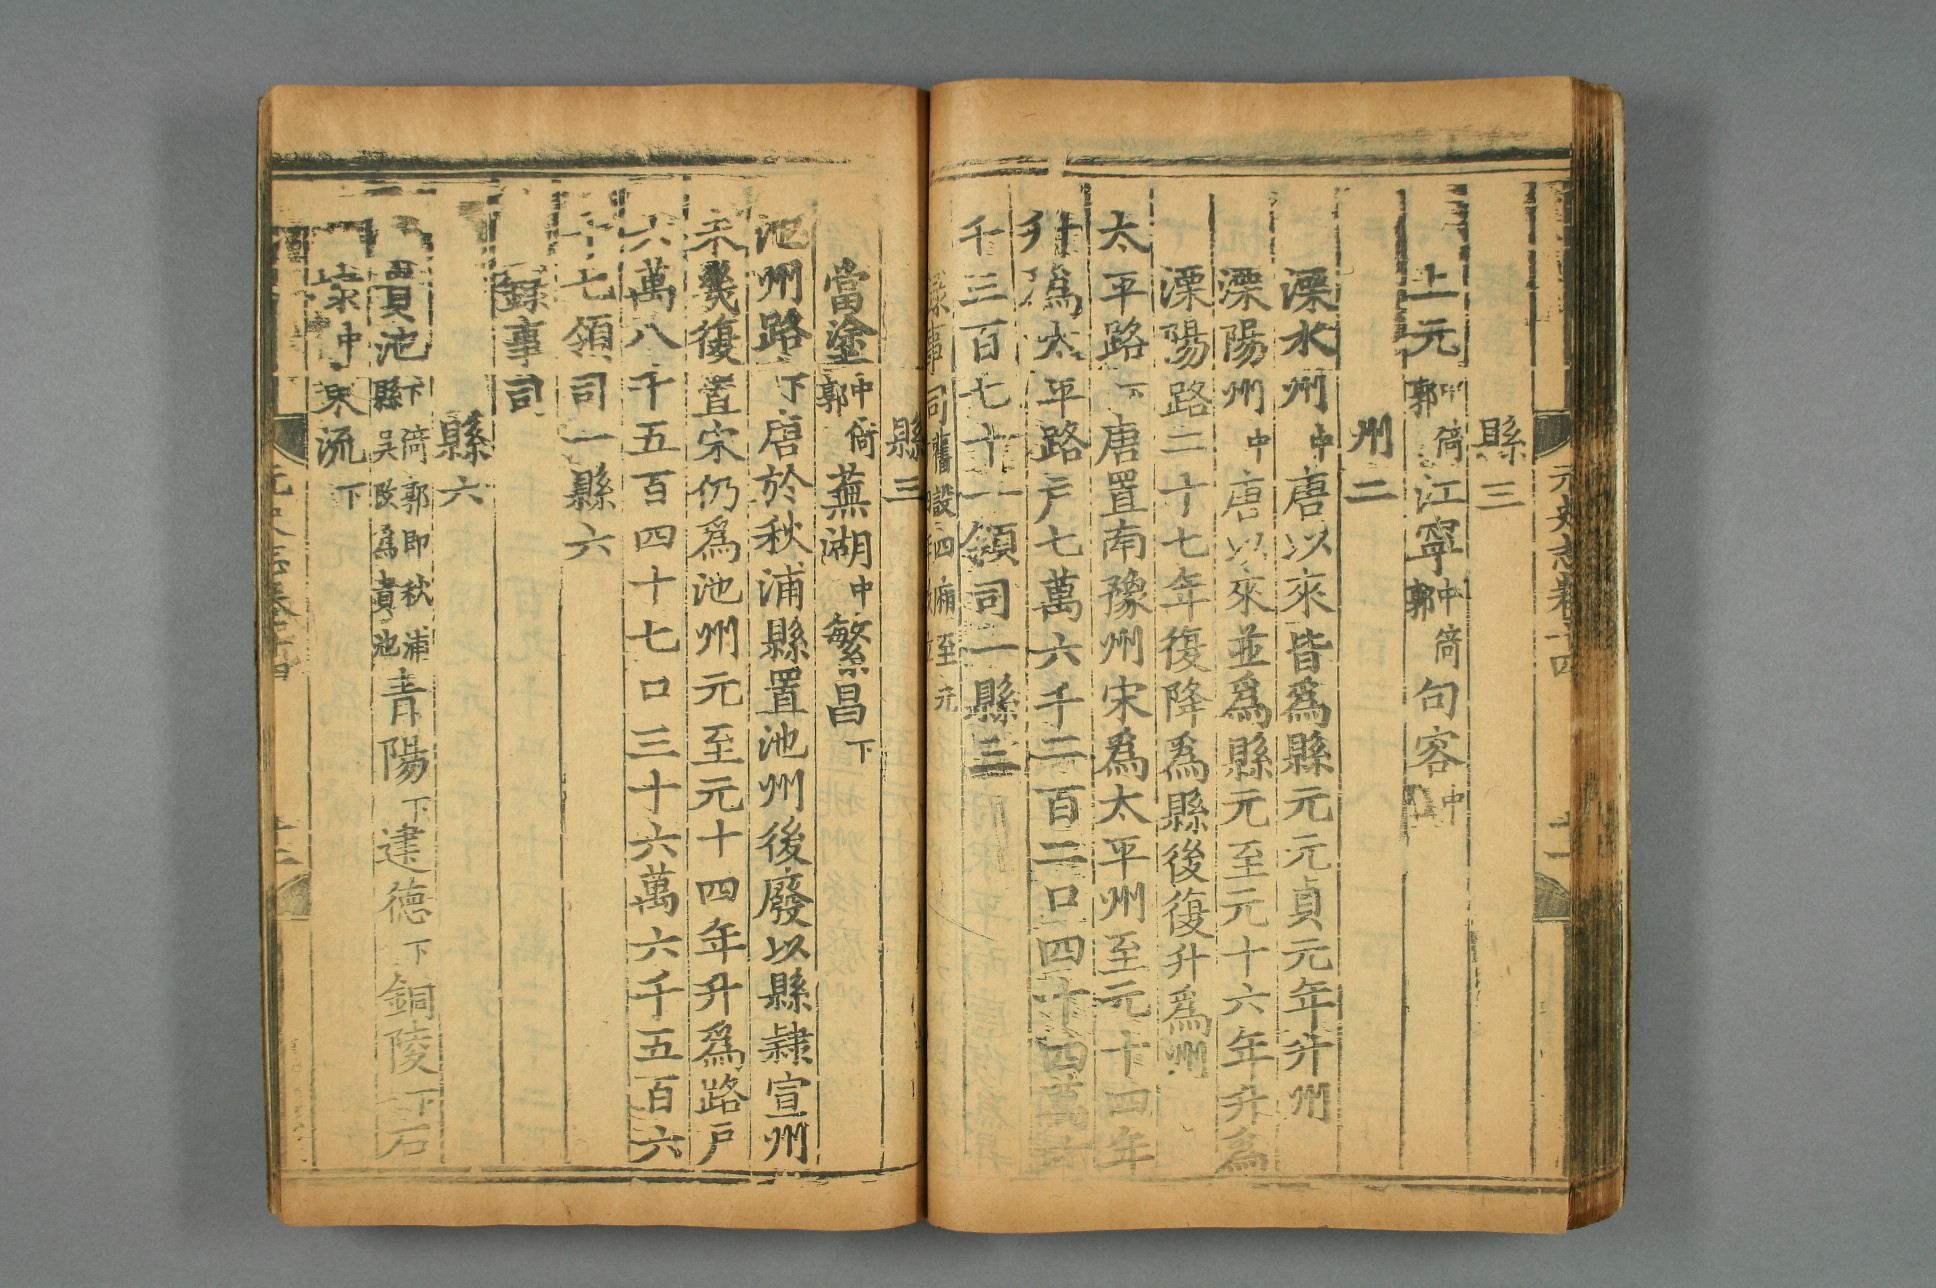 元史志卷十四
縣三
上元中倚郭江寧中倚郭句容中
州二
溧水州中唐以來皆爲縣元元貞元年升州
溧陽州中唐以來並爲縣元至元十六年升爲
溧陽路二十七年復降爲縣後復升爲州
太平路下唐置南豫州宋爲太平州至元十四年
升爲太平路戶七萬六千二百二口四十四萬六
千三百七十一領司一縣三
錄事司舊設四廂至元
縣三
當塗中倚郭蕪湖中繁昌下
池州路下唐於秋浦縣置池州後廢以縣隸宣州
未幾復置宋仍爲池州元至元十四年升爲路戶
六萬八千五百四十七口三十六萬六千五百六
十七領司一縣六
錄事司
縣六
貴池下倚郭即秋浦縣吳改爲貴池青陽下建德下銅陵下石
埭中東流下
元史志卷十四
十二